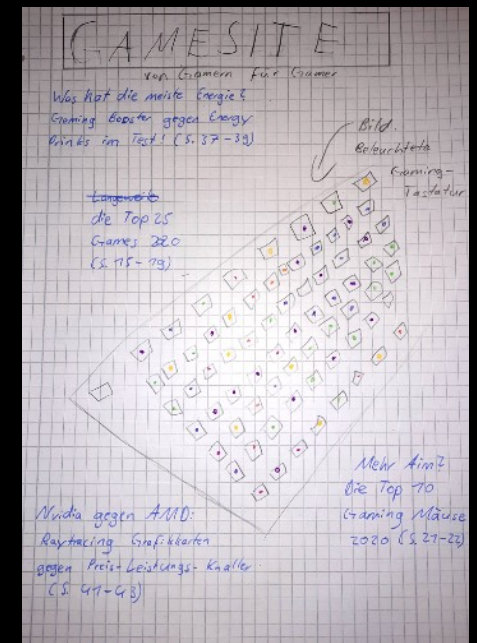 GAMESITE
von Gamern für Gamer
Was hat die meiste Energie?
Gaming Booster gegen Energy
Drinks im Test! (S. 37-39)
Bild.
Beleuchtete
Gaming-
Tastatur
Langeweile
die Top 25
Games 2020
(S. 15-19)
Mehr Aim?
Die Top 10
Gaming Mäuse
2020 (S. 21-22)
Nvidia gegen AMD:
Raytracing Grafikkarten
gegen Preis-Leistungs-Knaller
(S. 41-43)